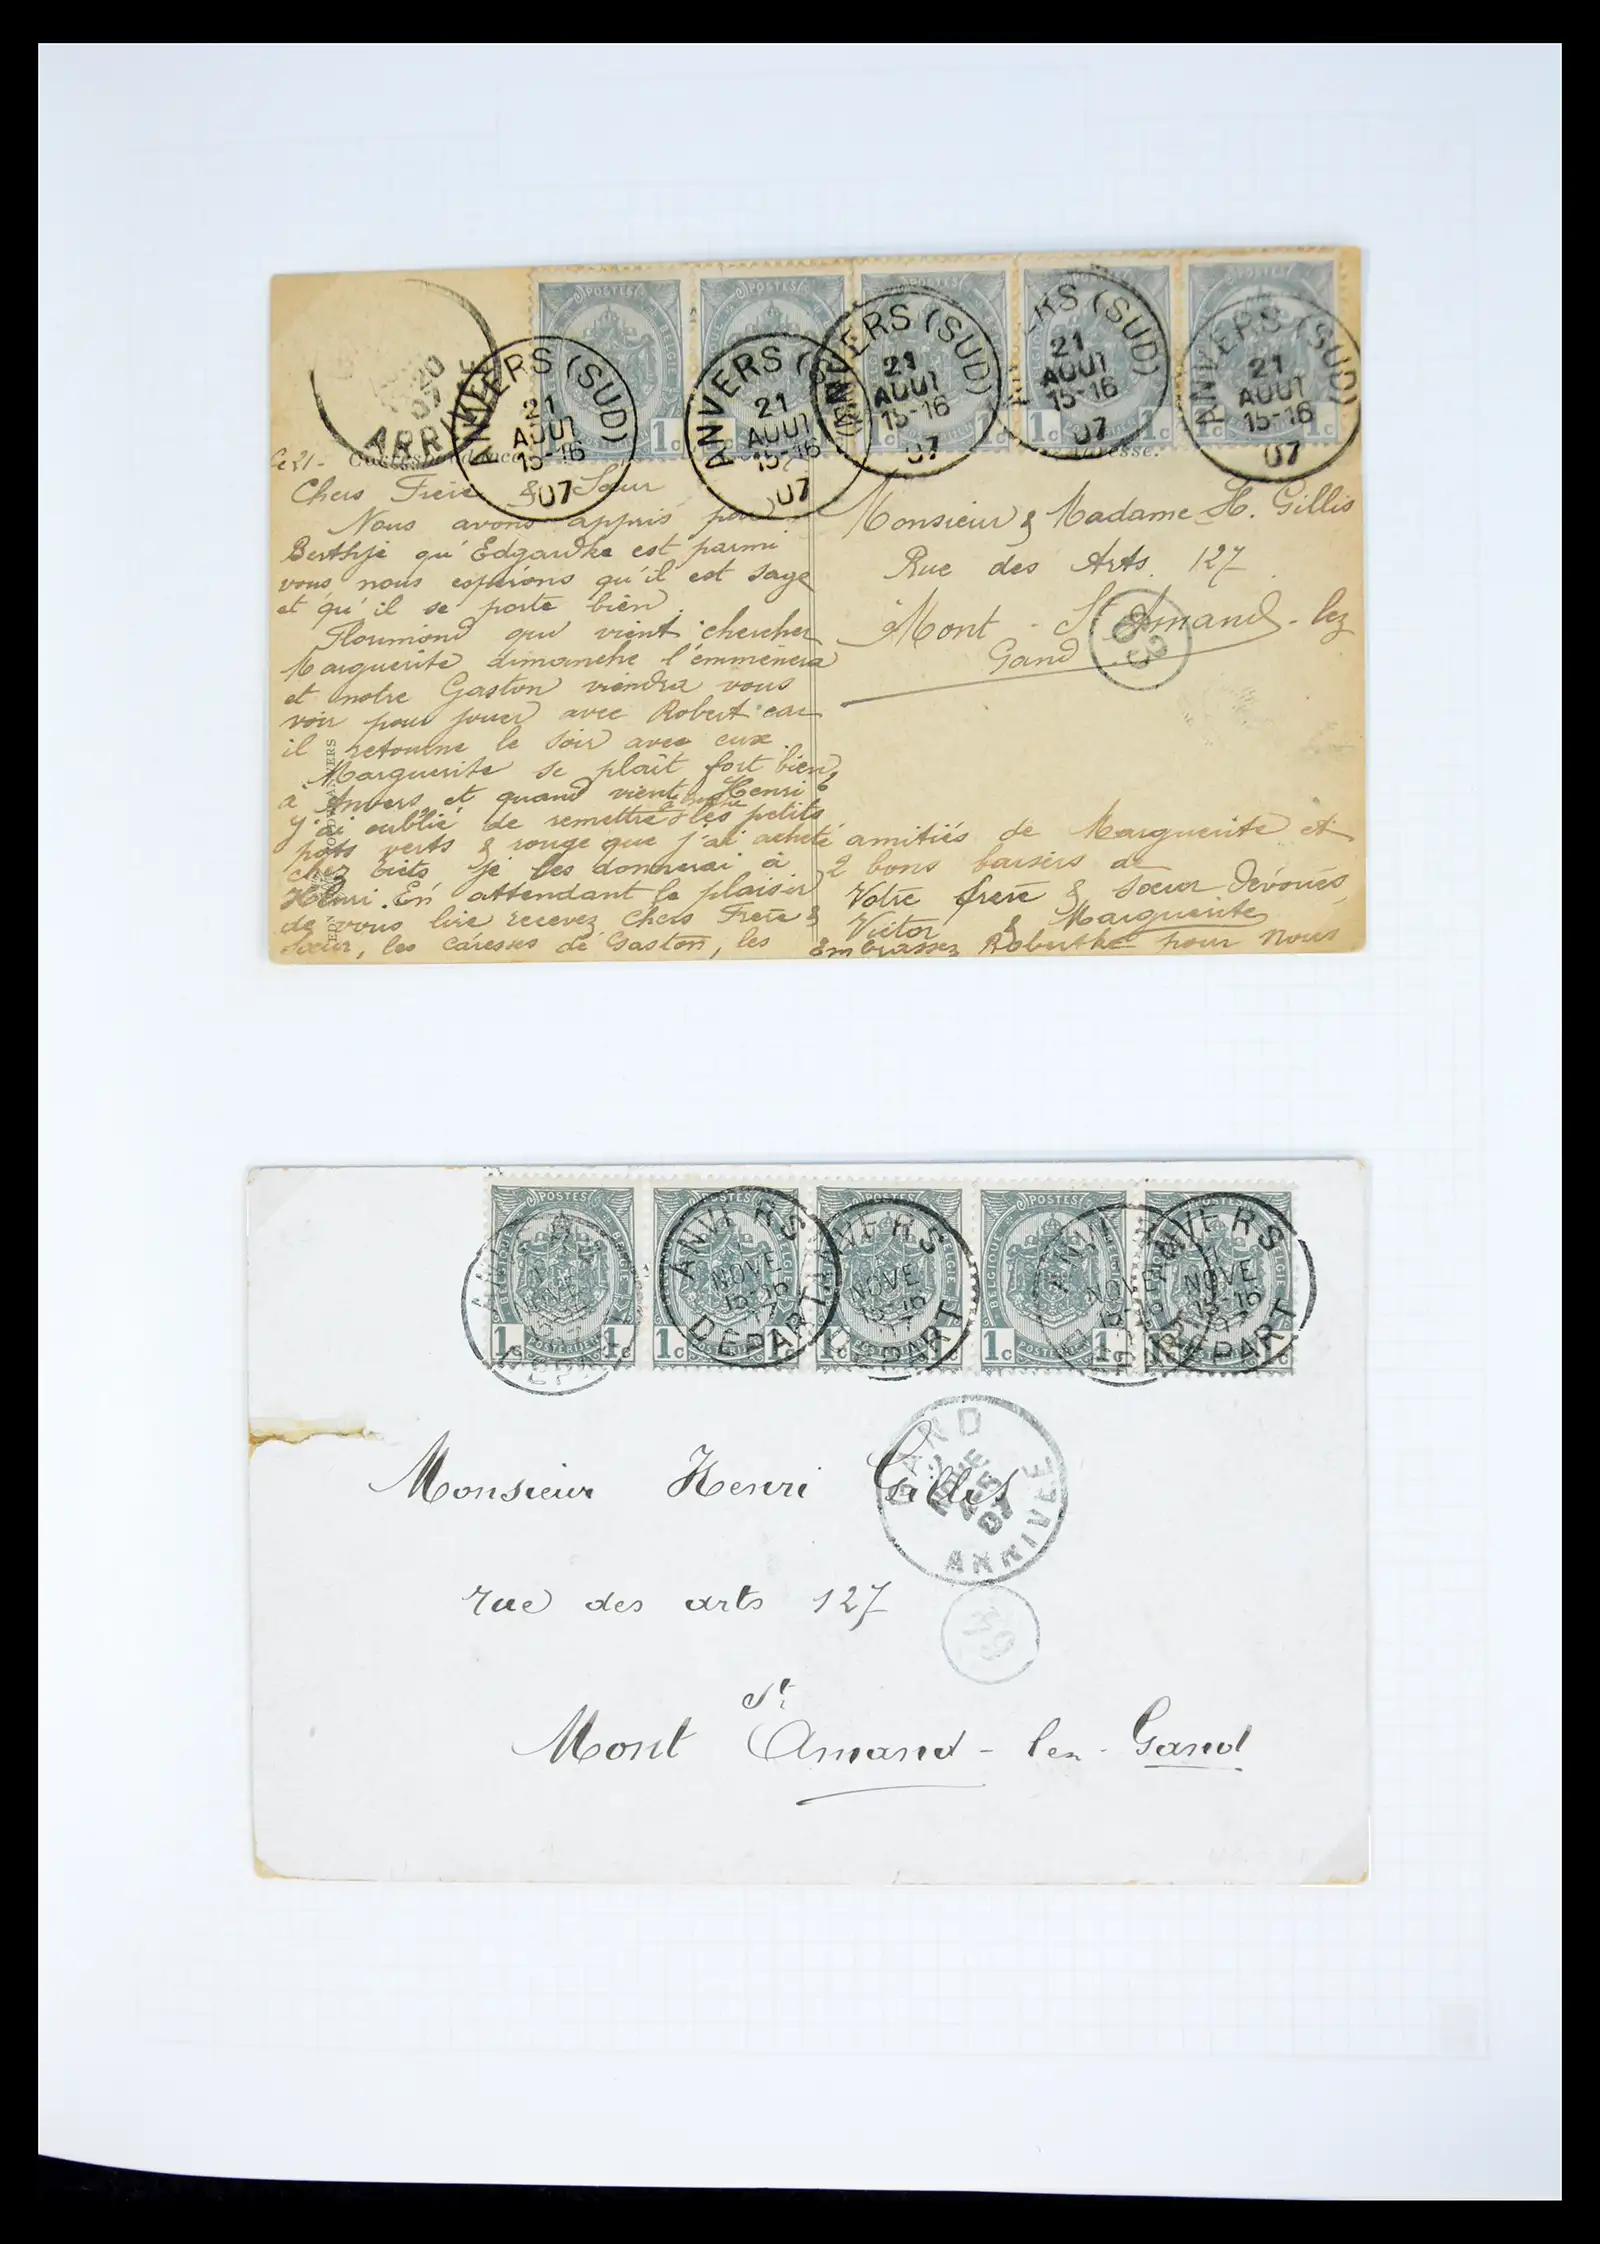 POSTES BELGIQUE BELGIE POSTERIJEN 1c 1c
ANVERS (SUD) 21 AOUT 15-16 07
ANVERS (SUD) 21 AOUT 15-16 07
ANVERS (SUD) 21 AOUT 15-16 07
ANVERS (SUD) 21 AOUT 15-16 07
ANVERS (SUD) 21 AOUT 15-16 07
20 07 ARRIVEE
Ce 21 - Correspondance
Adresse.
Chers Frère & Sœur
Nous avons appris par
Berthje qu'Edgardke est parmi
vous, nous espérons qu'il est sage
et qu'il se porte bien.
Floumond qui vient chercher
Marguerite dimanche l'emmènera
et notre Gaston viendra vous
voir pour jouer avec Robert car
il retourne le soir avec eux.
Marguerite se plaît fort bien
à Anvers et quand vient Henri ?
J'ai oublié de remettre les petits
pots verts & rouge que j'ai acheté
chez je les donnerai à
Henri. En attendant le plaisir
de vous lire recevez chers Frère &
Sœur, les caresses de Gaston, les
Monsieur & Madame H. Gillis
Rue des Arts. 127
à Mont - St Amand - lez
Gand
83
amitiés de Marguerite et
2 bons baisers de
Votre frère & Sœur dévoués,
Victor & Marguerite
Embrassez Robertke pour nous
POSTES BELGIQUE BELGIE POSTERIJEN 1c 1c
ANVERS NOVE 15-16 DEPART
ANVERS NOVE 15-16 DEPART
ANVERS NOVE 15-16 DEPART
GAND NOVE 07 ARRIVEE
Monsieur Henri Gillis
rue des arts 127
St
Mont Amand - lez - Gand